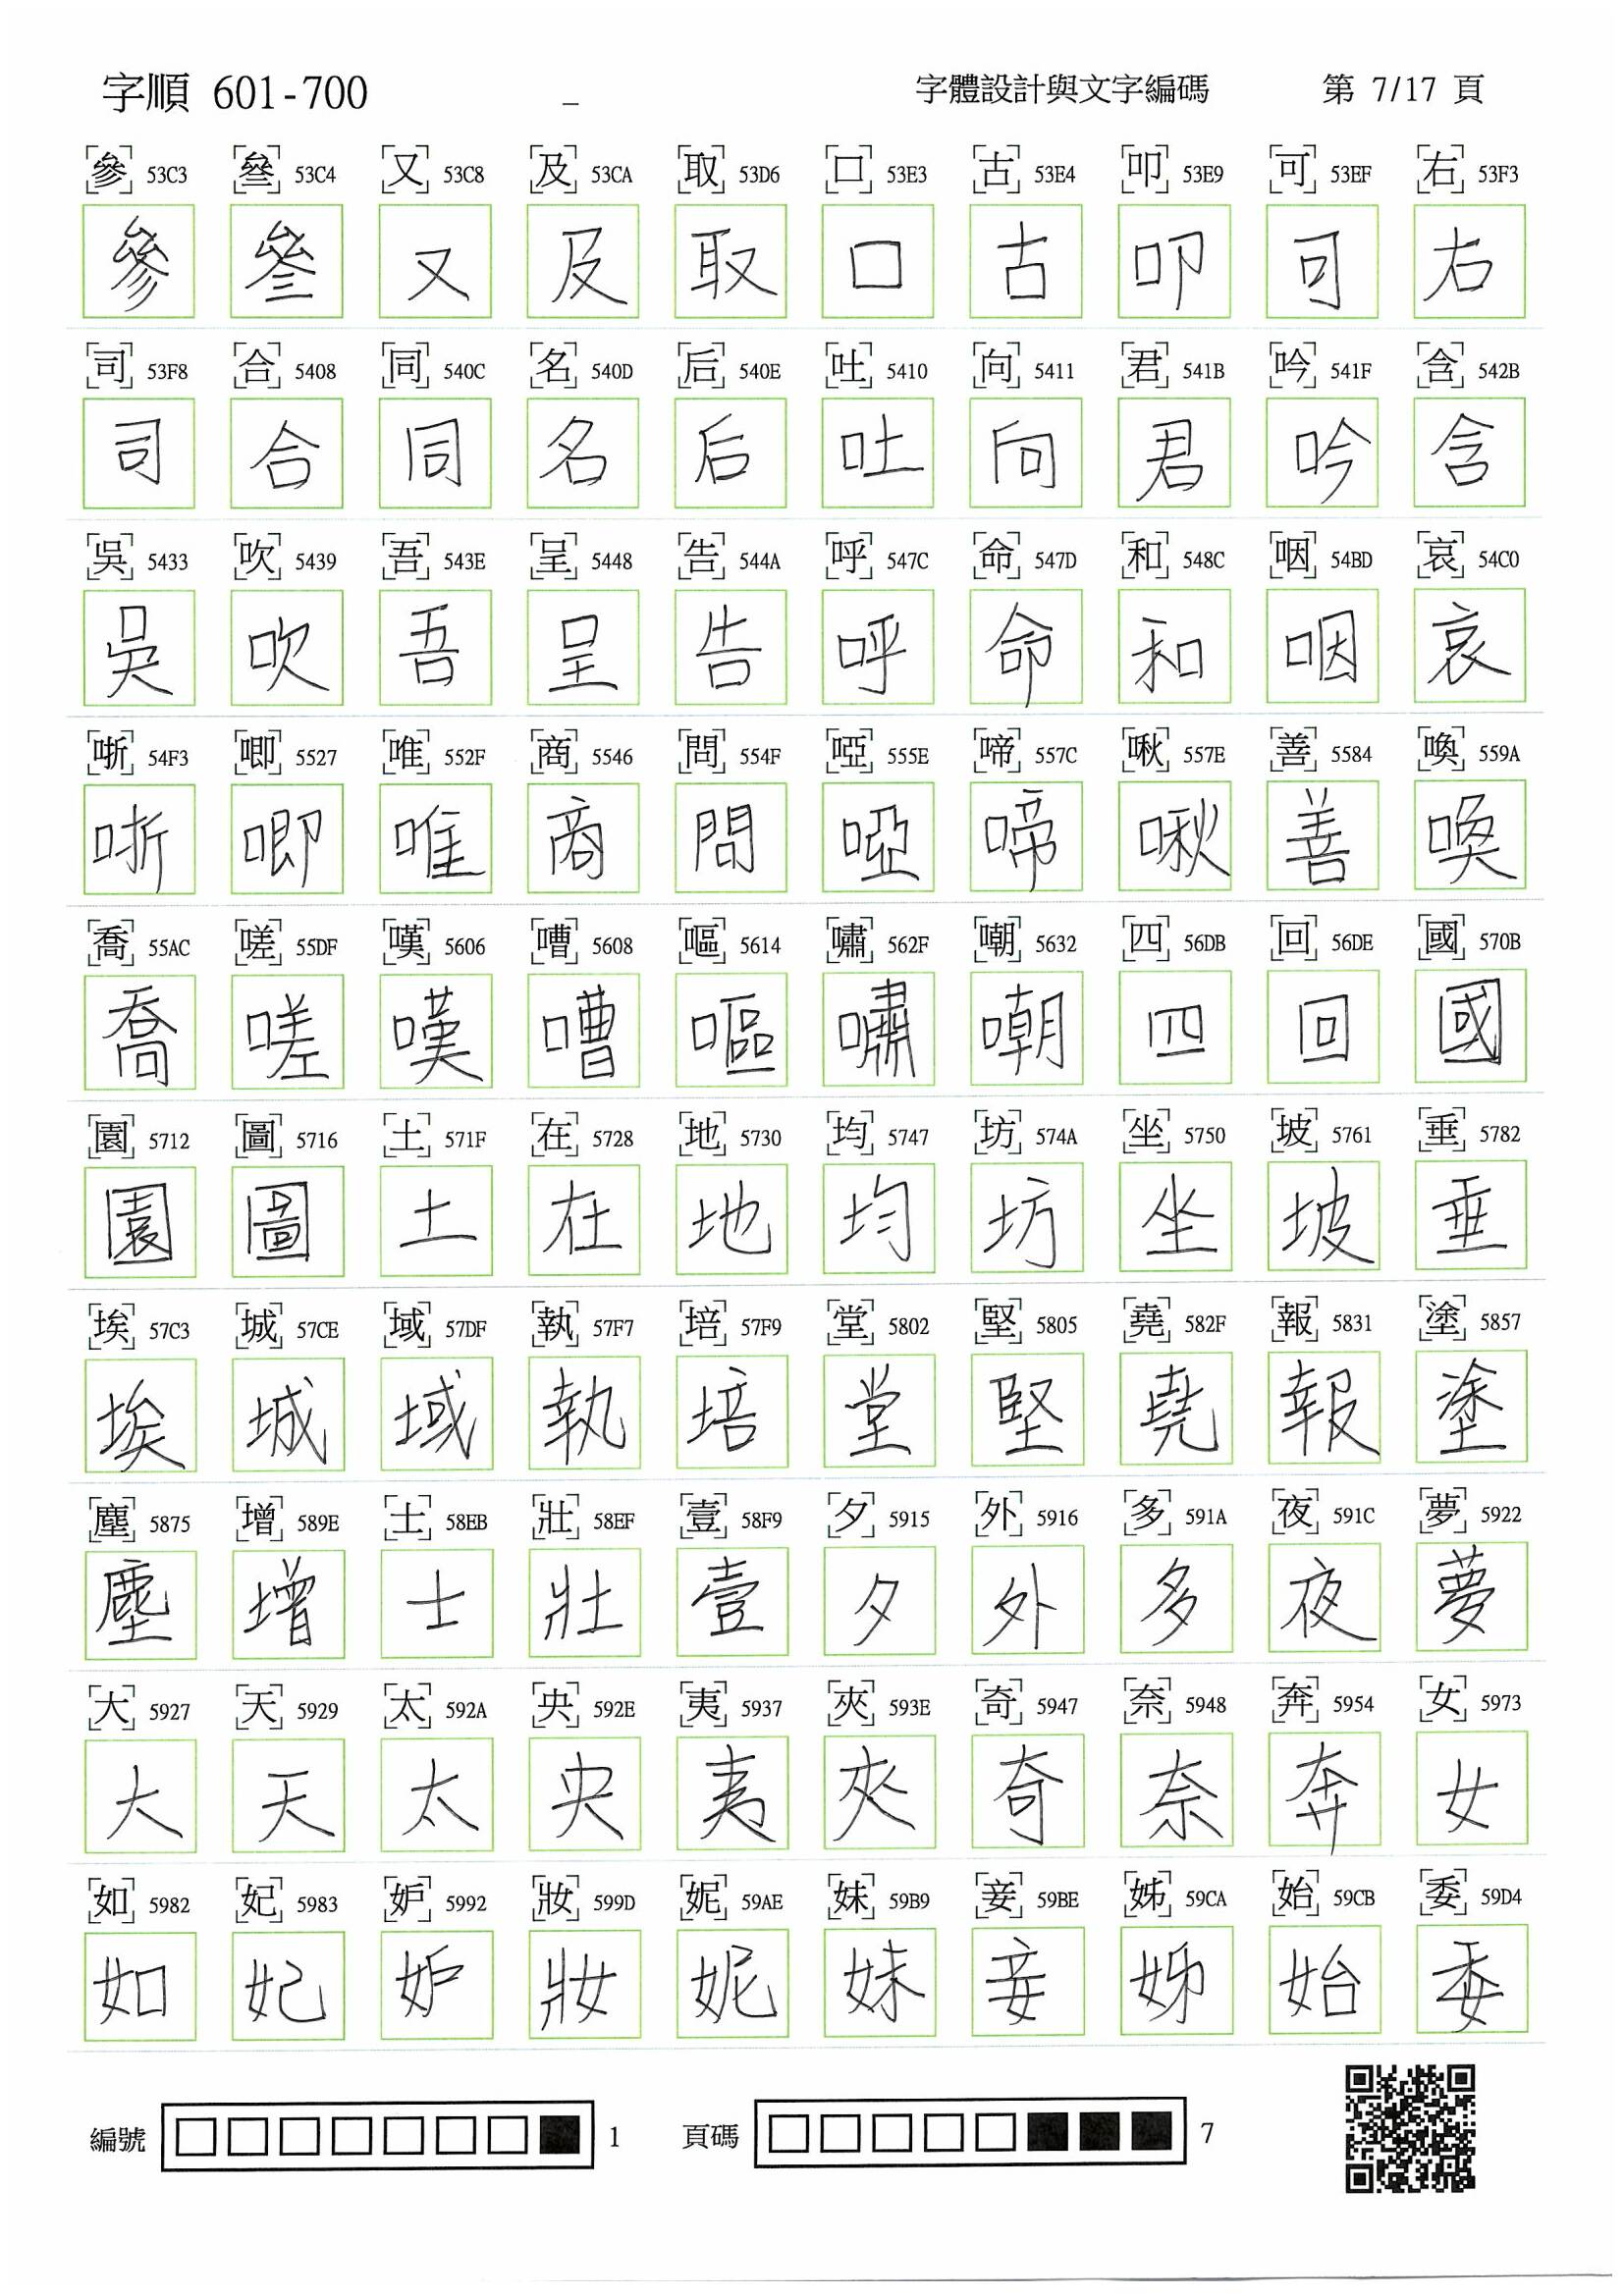 字順 601-700 _ 字體設計與文字編碼 第 7/17 頁
參 53C3 叄 53C4 又 53C8 及 53CA 取 53D6 口 53E3 古 53E4 叩 53E9 可 53EF 右 53F3
參 叄 又 及 取 口 古 叩 可 右
司 53F8 合 5408 同 540C 名 540D 后 540E 吐 5410 向 5411 君 541B 吟 541F 含 542B
司 合 同 名 后 吐 向 君 吟 含
吳 5433 吹 5439 吾 543E 呈 5448 告 544A 呼 547C 命 547D 和 548C 咽 54BD 哀 54C0
吳 吹 吾 呈 告 呼 命 和 咽 哀
哳 54F3 唧 5527 唯 552F 商 5546 問 554F 啞 555E 啼 557C 啾 557E 善 5584 喚 559A
哳 唧 唯 商 問 啞 啼 啾 善 喚
喬 55AC 嗟 55DF 嘆 5606 嘈 5608 嘔 5614 嘯 562F 嘲 5632 四 56DB 回 56DE 國 570B
喬 嗟 嘆 嘈 嘔 嘯 嘲 四 回 國
園 5712 圖 5716 土 571F 在 5728 地 5730 均 5747 坊 574A 坐 5750 坡 5761 垂 5782
園 圖 土 在 地 均 坊 坐 坡 垂
埃 57C3 城 57CE 域 57DF 執 57F7 培 57F9 堂 5802 堅 5805 堯 582F 報 5831 塗 5857
埃 城 域 執 培 堂 堅 堯 報 塗
塵 5875 增 589E 士 58EB 壯 58EF 壹 58F9 夕 5915 外 5916 多 591A 夜 591C 夢 5922
塵 增 士 壯 壹 夕 外 多 夜 夢
大 5927 天 5929 太 592A 央 592E 夷 5937 夾 593E 奇 5947 奈 5948 奔 5954 女 5973
大 天 太 央 夷 夾 奇 奈 奔 女
如 5982 妃 5983 妒 5992 妝 599D 妮 59AE 妹 59B9 妾 59BE 姊 59CA 始 59CB 委 59D4
如 妃 妒 妝 妮 妹 妾 姊 始 委
編號 1 頁碼 7